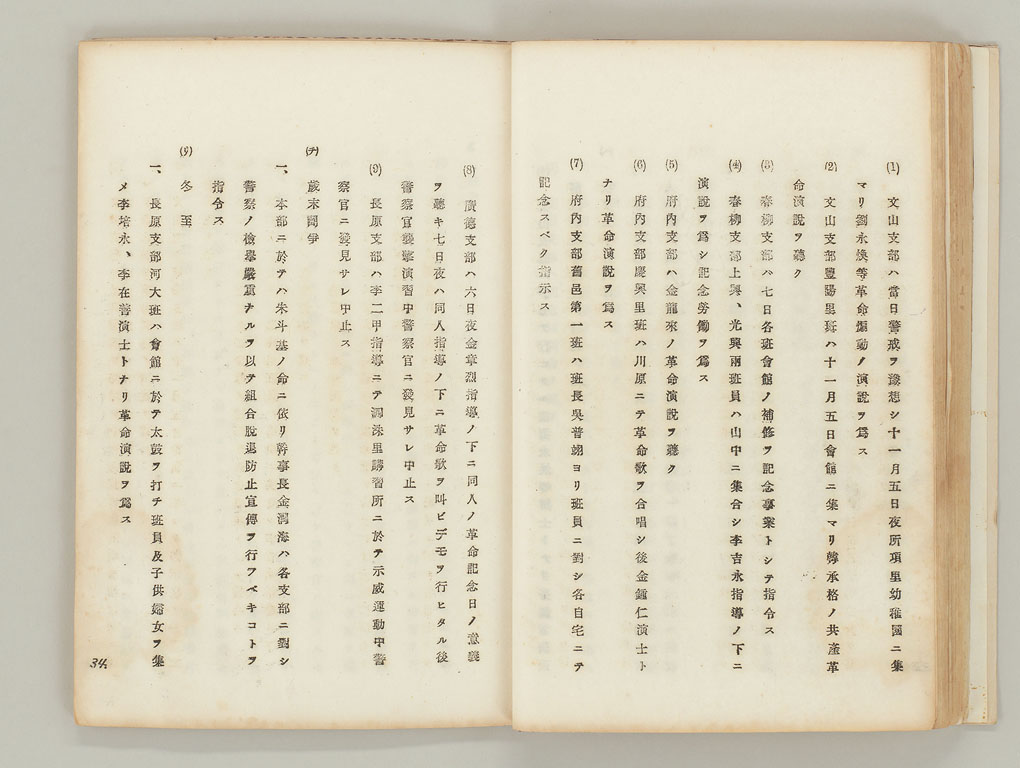 (1) 文山支部ハ當日警戒ヲ豫想シ十一月五日夜所項里幼稚園ニ集
マリ劉永煥等革命煽動ノ演説ヲ爲ス
(2) 文山支部豐陽里班ハ十一月五日會館ニ集マリ韓承格ノ共產革
命演説ヲ聽ク
(3) 春柳支部ハ七日各班會館ノ補修ヲ記念事業トシテ指令ス
(4) 春柳支部上興、光興兩班員ハ山中ニ集合シ李吉永指導ノ下ニ
演説ヲ爲シ記念勞働ヲ爲ス
(5) 府内支部ハ金龍來ノ革命演説ヲ聽ク
(6) 府内支部慶興里班ハ川原ニテ革命歌ヲ合唱シ後金鍾仁演士ト
ナリ革命演説ヲ爲ス
(7) 府内支部舊邑第一班ハ班長吳普翊ヨリ班員ニ對シ各自宅ニテ
記念スベク指示ス
(8) 廣德支部ハ六日夜金章烈指導ノ下ニ同人ノ革命記念日ノ意義
ヲ聽キ七日夜ハ同人指導ノ下ニ革命歌ヲ叫ビデモヲ行ヒタル後
警察官襲擊演習中警察官ニ發見サレ中止ス
(9) 長原支部ハ李二甲指導ニテ洞洙里講習所ニ於テ示威運動中警
察官ニ發見サレ中止ス
(チ) 歲末鬪爭
一、本部ニ於テハ朱斗基ノ命ニ依リ幹事長金洞海ハ各支部ニ對シ
警察ノ檢擧嚴重ナルヲ以テ組合脫退防止宣傳ヲ行フベキコトヲ
指令ス
(リ) 冬至
一、長原支部河大班ハ會館ニ於テ太鼓ヲ打チ班員及子供婦女ヲ集
メ李培永、李在善演士トナリ革命演説ヲ爲ス
34